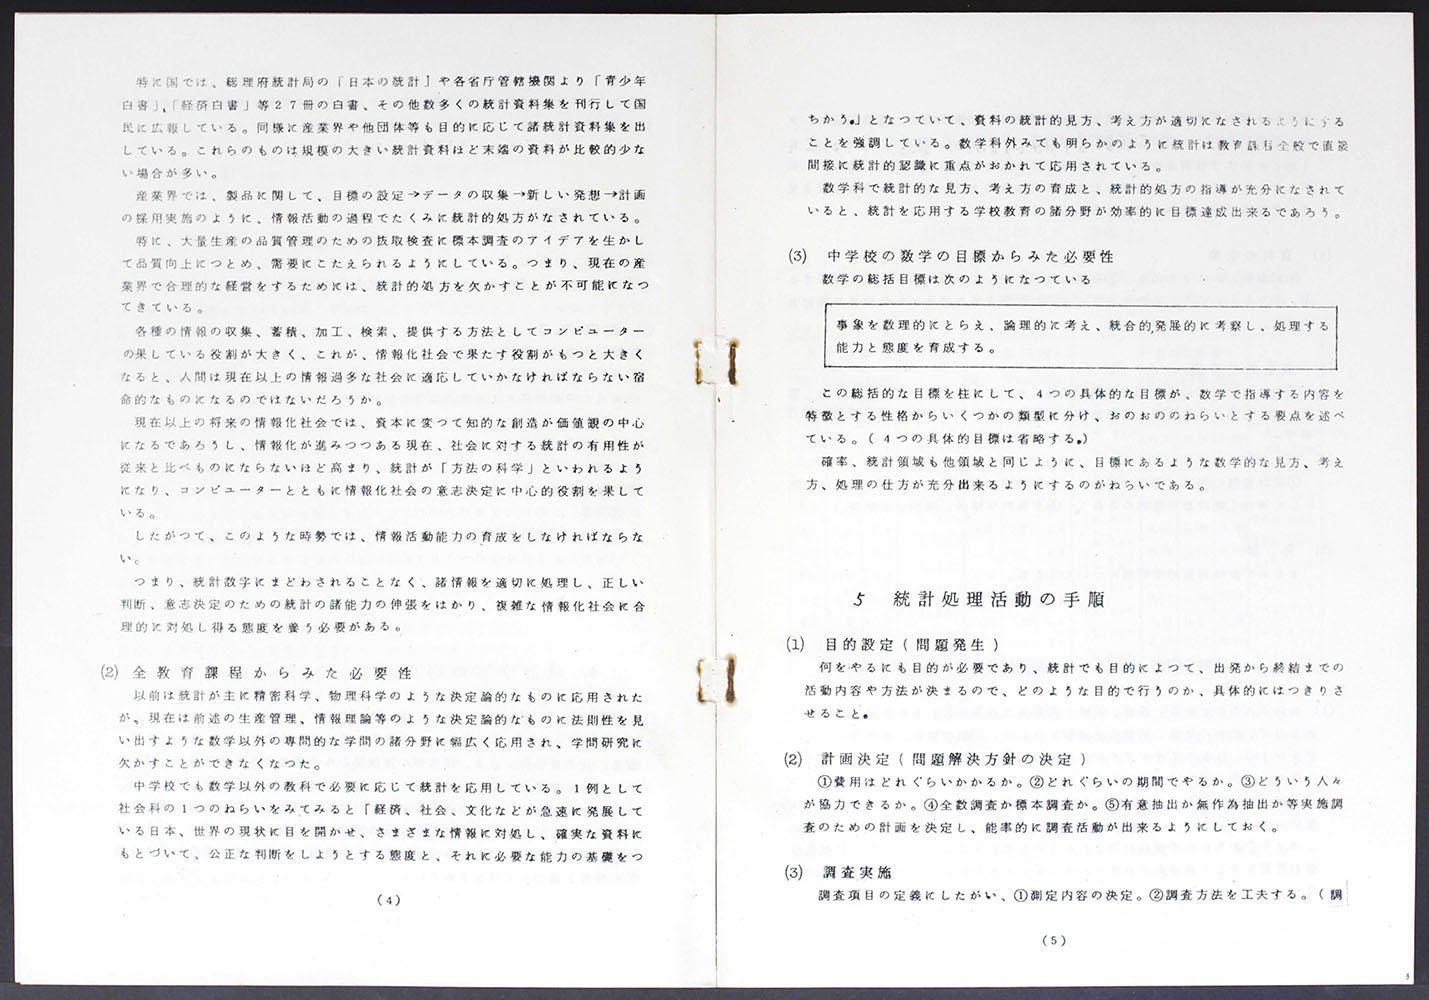 特に国では、総理府統計局の「日本の統計」や各省庁管轄機関より「青少年
白書」、「経済白書」等27冊の白書、その他数多くの統計資料集を刊行して国
民に広報している。同様に産業界や他団体等も目的に応じて諸統計資料集を出
している。これらのものは規模の大きい統計資料ほど末端の資料が比較的少な
い場合が多い。
産業界では、製品に関して、目標の設定→データの収集→新しい発想→計画
の採用実施のように、情報活動の過程でたくみに統計的処方がなされている。
特に、大量生産の品質管理のための抜取検査に標本調査のアイデアを生かし
て品質向上につとめ、需要にこたえられるようにしている。つまり、現在の産
業界で合理的な経営をするためには、統計的処方を欠かすことが不可能になつ
てきている。
各種の情報の収集、蓄積、加工、検索、提供する方法としてコンピューター
の果している役割が大きく、これが、情報化社会で果たす役割がもつと大きく
なると、人間は現在以上の情報過多な社会に適応していかなければならない宿
命的なものになるのではないだろうか。
現在以上の将来の情報化社会では、資本に変つて知的な創造が価値観の中心
になるであろうし、情報化が進みつつある現在、社会に対する統計の有用性が
従来と比べものにならないほど高まり、統計が「方法の科学」といわれるよう
になり、コンピューターとともに情報化社会の意志決定に中心的役割を果して
いる。
したがつて、このような時勢では、情報活動能力の育成をしなければならな
い。
つまり、統計数字にまどわされることなく、諸情報を適切に処理し、正しい
判断、意志決定のための統計の諸能力の伸張をはかり、複雑な情報化社会に合
理的に対処し得る態度を養う必要がある。
(2) 全教育課程からみた必要性
以前は統計が主に精密科学、物理科学のような決定論的なものに応用された
が、現在は前述の生産管理、情報理論等のような決定論的なものに法則性を見
い出すような数学以外の専問的な学問の諸分野に幅広く応用され、学問研究に
欠かすことができなくなつた。
中学校でも数学以外の教科で必要に応じて統計を応用している。1例として
社会科の1つのねらいをみてみると「経済、社会、文化などが急速に発展して
いる日本、世界の現状に目を開かせ、さまざまな情報に対処し、確実な資料に
もとづいて、公正な判断をしようとする態度と、それに必要な能力の基礎をつ
(4)
ちかう。」となつていて、資料の統計的見方、考え方が適切になされるようにする
ことを強調している。数学科外みても明らかのように統計は教育課程全般で直接
間接に統計的認識に重点がおかれて応用されている。
数学科で統計的な見方、考え方の育成と、統計的処方の指導が充分になされて
いると、統計を応用する学校教育の諸分野が効率的に目標達成出来るであろう。
(3) 中学校の数学の目標からみた必要性
数学の総括目標は次のようになつている
事象を数理的にとらえ、論理的に考え、統合的発展的に考察し、処理する
能力と態度を育成する。
この総括的な目標を柱にして、4つの具体的な目標が、数学で指導する内容を
特徴とする性格からいくつかの類型に分け、おのおののねらいとする要点を述べ
ている。(4つの具体的目標は省略する。)
確率、統計領域も他領域と同じように、目標にあるような数学的な見方、考え
方、処理の仕方が充分出来るようにするのがねらいである。
5 統計処理活動の手順
(1) 目的設定(問題発生)
何をやるにも目的が必要であり、統計でも目的によつて、出発から終結までの
活動内容や方法が決まるので、どのような目的で行うのか、具体的にはつきりさ
せること。
(2) 計画決定(問題解決方針の決定)
①費用はどれぐらいかかるか。②どれぐらいの期間でやるか。③どういう人々
が協力できるか。④全数調査か標本調査か。⑤有意抽出か無作為抽出か等実施調
査のための計画を決定し、能率的に調査活動が出来るようにしておく。
(3) 調査実施
調査項目の定義にしたがい、①測定内容の決定。②調査方法を工夫する。(調
(5)